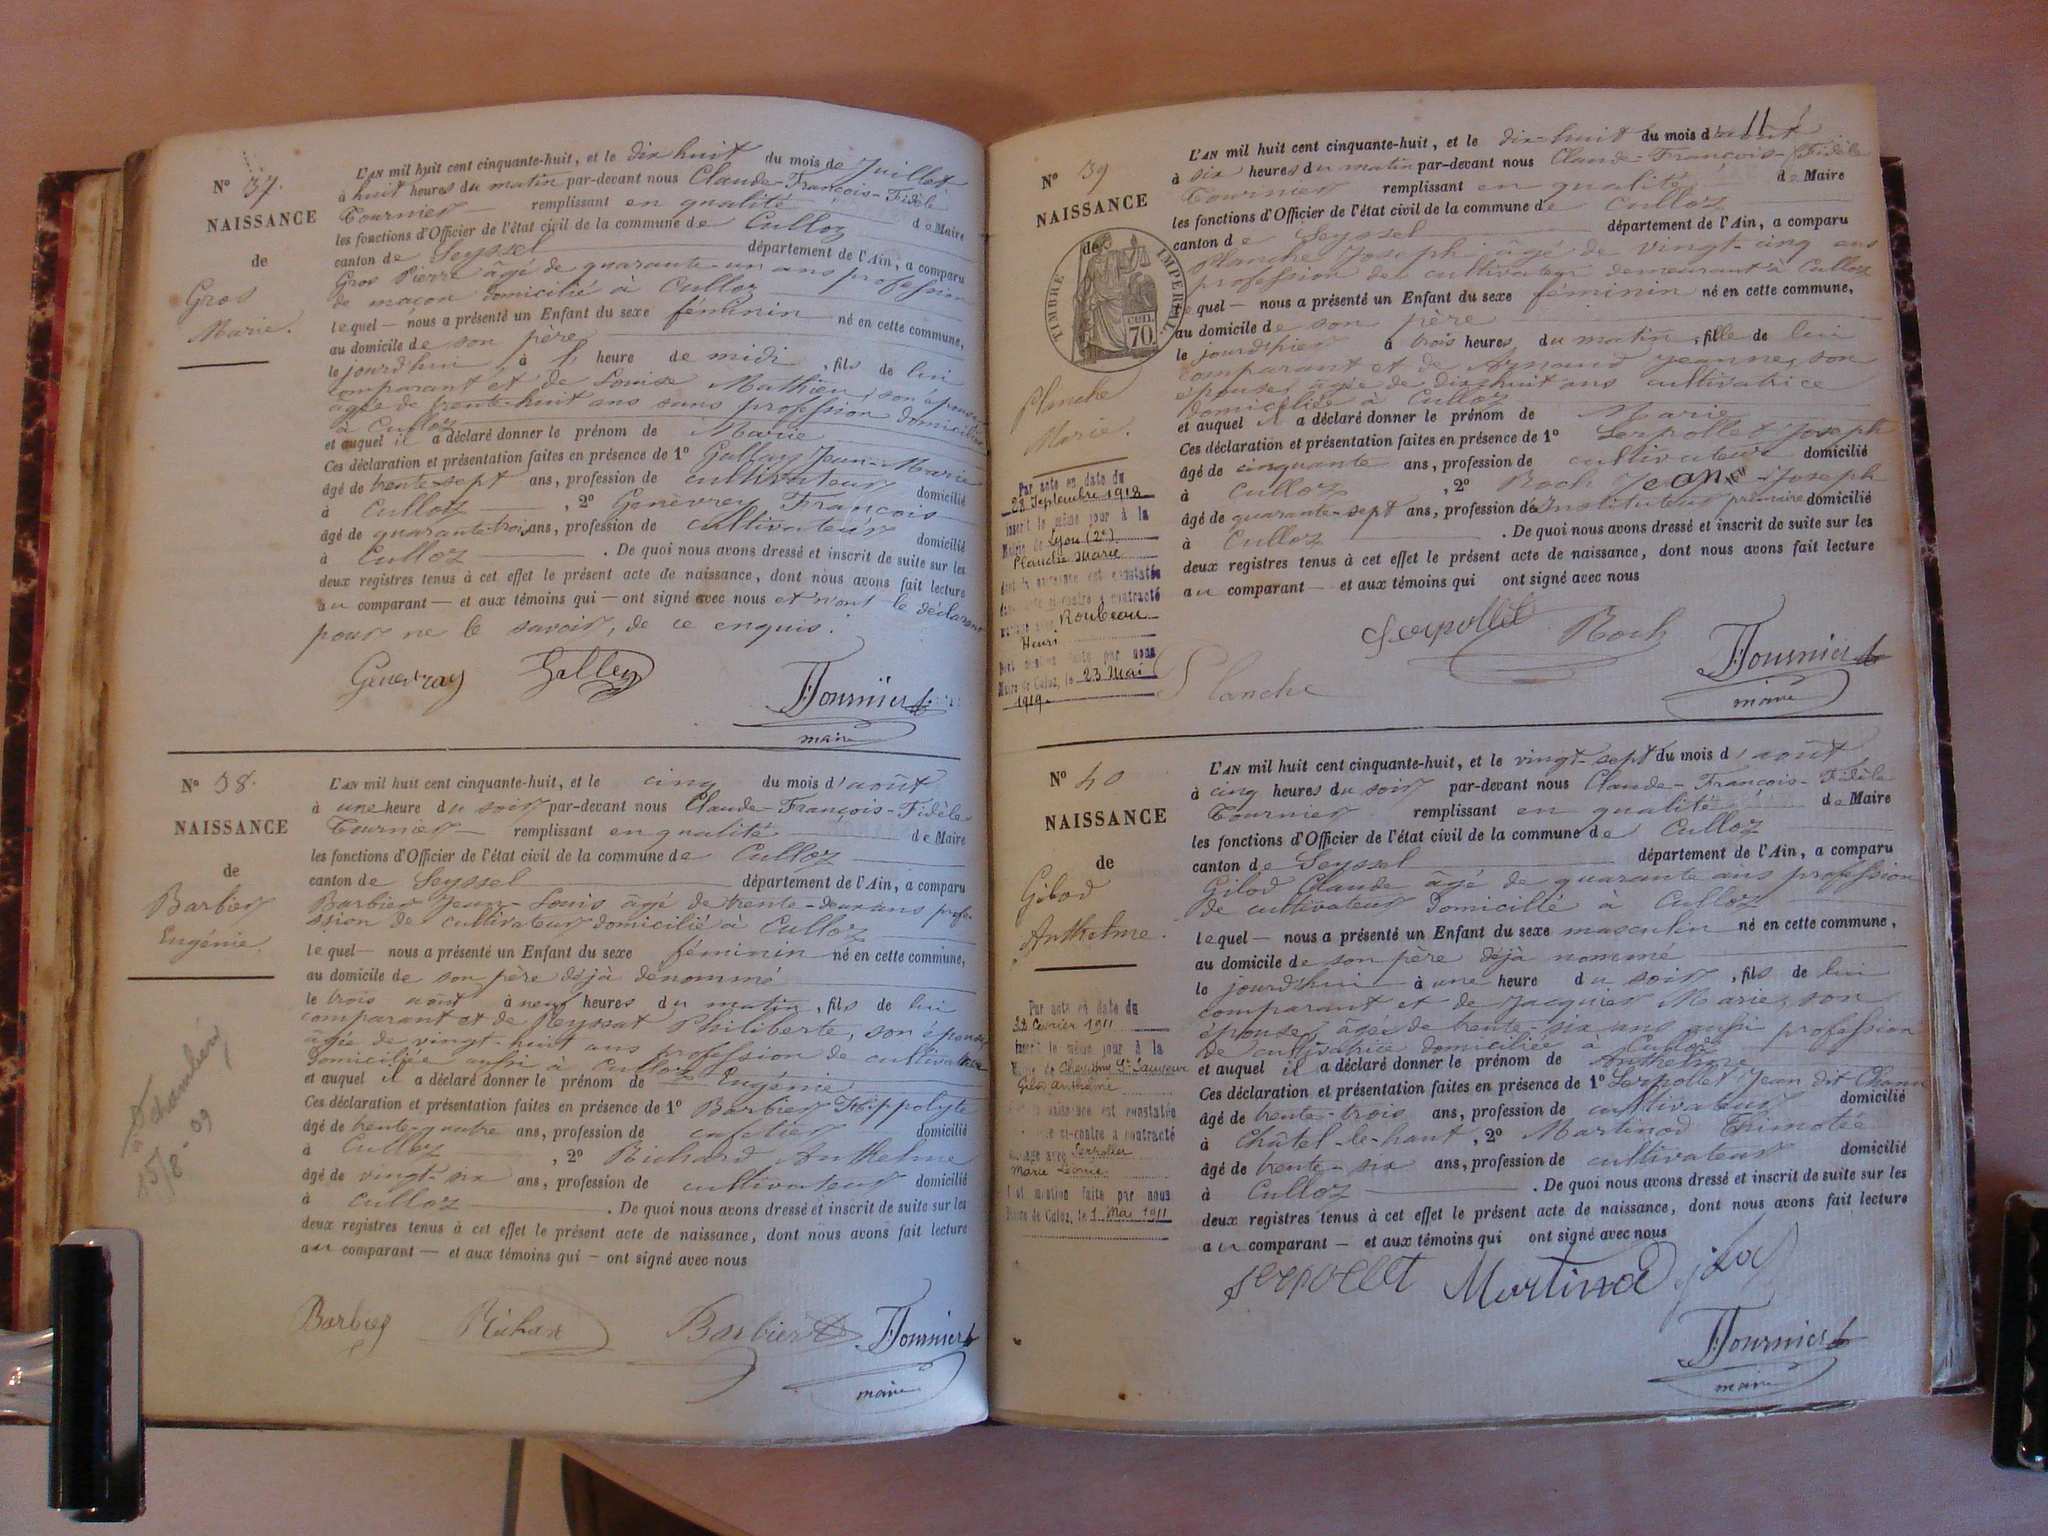 N° 37.
NAISSANCE
de
Gros
Marie.
L'AN mil huit cent cinquante-huit, et le dix huit du mois de Juillet
à huit heures du matin par-devant nous Claude-François-Fidèle
Tournier remplissant en qualité de Maire
les fonctions d'Officier de l'état civil de la commune de Culloz
canton de Seyssel département de l'Ain, a comparu
Gros Pierre âgé de quarante-un ans profession
de maçon domicilié à Culloz
lequel nous a présenté un Enfant du sexe féminin né en cette commune,
au domicile de son père
le jourd'hui à heure de midi, fils de lui
comparant et de Louise Mathieu, son épouse
âgée de trente-huit ans sans profession domiciliée
à Culloz
et auquel il a déclaré donner le prénom de Marie
Ces déclaration et présentation faites en présence de 1° Gallay Jean-Marie
âgé de trente-sept ans, profession de cultivateur domicilié
à Culloz, 2° Genèvrey François
âgé de quarante-trois ans, profession de cultivateur domicilié
à Culloz. De quoi nous avons dressé et inscrit de suite sur les
deux registres tenus à cet effet le présent acte de naissance, dont nous avons fait lecture
au comparant et aux témoins qui ont signé avec nous et non le déclarant
pour ne le savoir, de ce enquis.
Genevray Galley
FTournier
maire
N° 38.
NAISSANCE
de
Barbier
Eugénie.
Chambéry
15/8-09
L'AN mil huit cent cinquante-huit, et le cinq du mois d'août
à une heure du soir par-devant nous Claude-François-Fidèle
Tournier remplissant en qualité de Maire
les fonctions d'Officier de l'état civil de la commune de Culloz
canton de Seyssel département de l'Ain, a comparu
Barbier Jean-Louis âgé de trente-deux ans profe-
ssion de cultivateur domicilié à Culloz
lequel nous a présenté un Enfant du sexe féminin né en cette commune,
au domicile de son père déjà dénommé
le trois août à neuf heures du matin, fils de lui
comparant et de Peyssat Philiberte, son épouse
âgée de vingt-huit ans profession de cultivatrice
domiciliée aussi à Culloz
et auquel il a déclaré donner le prénom de Eugénie
Ces déclaration et présentation faites en présence de 1° Barbier Hippolyte
âgé de trente-quatre ans, profession de cafetier domicilié
à Culloz, 2° Richard Anthelme
âgé de vingt-six ans, profession de cultivateur domicilié
à Culloz. De quoi nous avons dressé et inscrit de suite sur les
deux registres tenus à cet effet le présent acte de naissance, dont nous avons fait lecture
au comparant et aux témoins qui ont signé avec nous
Barbier Richard Barbier FTournier
maire
11
N° 39
NAISSANCE
de
TIMBRE IMPERIAL
CEN. 70.
Planche
Marie.
Par acte en date du
28 Septembre 1918
inscrit le même jour à la
Mairie de Lyon (2e)
Planche Marie
dont la naissance est constatée
a contracté
Roubeau
Henri
par nous
Maire de Culoz, le 23 Mai
1919.
L'AN mil huit cent cinquante-huit, et le dix-huit du mois d'août
à six heures du matin par-devant nous Claude-François-Fidèle
Tournier remplissant en qualité de Maire
les fonctions d'Officier de l'état civil de la commune de Culloz
canton de Seyssel département de l'Ain, a comparu
Planche Joseph âgé de vingt-cinq ans
profession de cultivateur demeurant à Culloz
lequel nous a présenté un Enfant du sexe féminin né en cette commune,
au domicile de son père
le jourd'hier à trois heures du matin, fille de lui
comparant et de Aynaud Jeanne, son
épouse, âgée de dix-huit ans cultivatrice
domiciliée à Culloz
et auquel il a déclaré donner le prénom de Marie
Ces déclaration et présentation faites en présence de 1° Serpollet Joseph
âgé de cinquante ans, profession de cultivateur domicilié
à Culloz, 2° Roch Jean-Joseph
âgé de quarante-sept ans, profession de Instituteur primaire domicilié
à Culloz. De quoi nous avons dressé et inscrit de suite sur les
deux registres tenus à cet effet le présent acte de naissance, dont nous avons fait lecture
au comparant et aux témoins qui ont signé avec nous
Serpollet Roch
Planche
FTournier
maire
N° 40
NAISSANCE
de
Gilod
Anthelme.
Par acte en date du
22 février 1911
inscrit le même jour à la
Gilod Anthelme
naissance est constatée
ci-contre a contracté
mariage avec Serpollet
Marie Léonie
mention faite par nous
Maire de Culoz, le 1 Mai 1911
L'AN mil huit cent cinquante-huit, et le vingt-sept du mois d'août
à cinq heures du soir par-devant nous Claude-François-Fidèle
Tournier remplissant en qualité de Maire
les fonctions d'Officier de l'état civil de la commune de Culloz
canton de Seyssel département de l'Ain, a comparu
Gilod Claude âgé de quarante ans profession
de cultivateur domicilié à Culloz
lequel nous a présenté un Enfant du sexe masculin né en cette commune,
au domicile de son père déjà nommé
le jourd'hui à une heure du soir, fils de lui
comparant et de Jacquier Marie, son
épouse, âgée de trente-six ans aussi profession
de cultivatrice domiciliée à Culloz
et auquel il a déclaré donner le prénom de Anthelme
Ces déclaration et présentation faites en présence de 1° Serpollet Jean dit
âgé de trente-trois ans, profession de cultivateur domicilié
à Châtel-le-haut, 2° Martinod Thimotée
âgé de trente-six ans, profession de cultivateur domicilié
à Culloz. De quoi nous avons dressé et inscrit de suite sur les
deux registres tenus à cet effet le présent acte de naissance, dont nous avons fait lecture
au comparant et aux témoins qui ont signé avec nous
Serpollet Martinod jilod
FTournier
maire